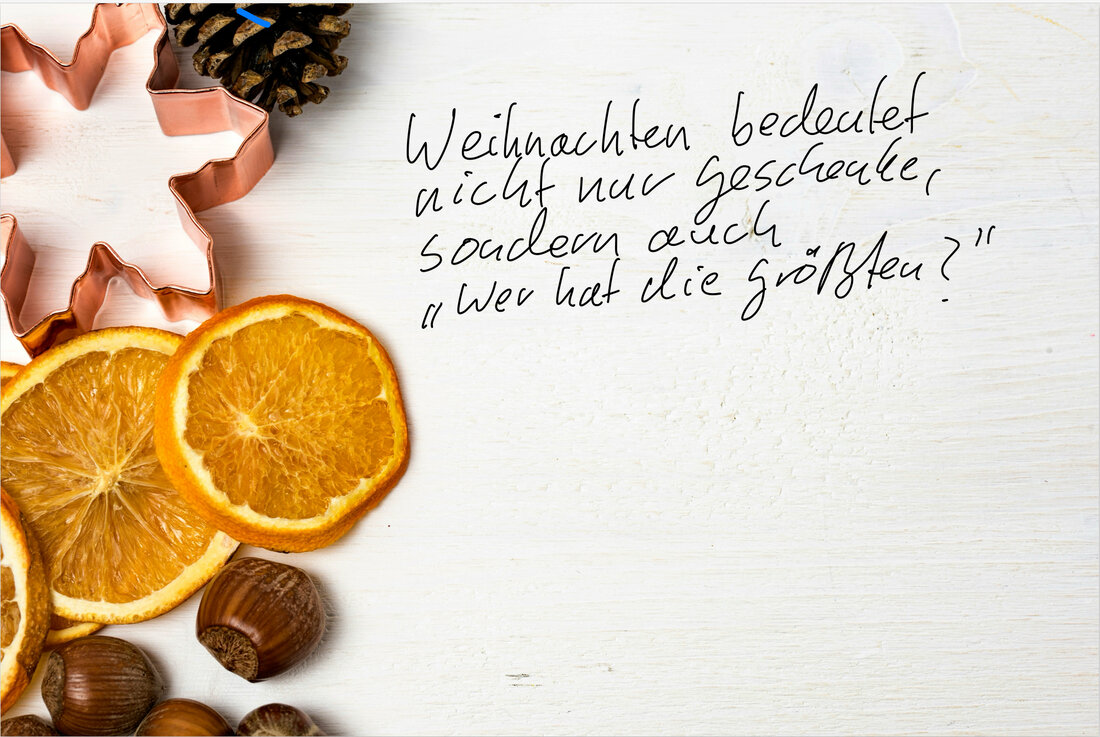 Weihnachten bedeutet
nicht nur geschenke,
sondern auch
„Wer hat die größten?"